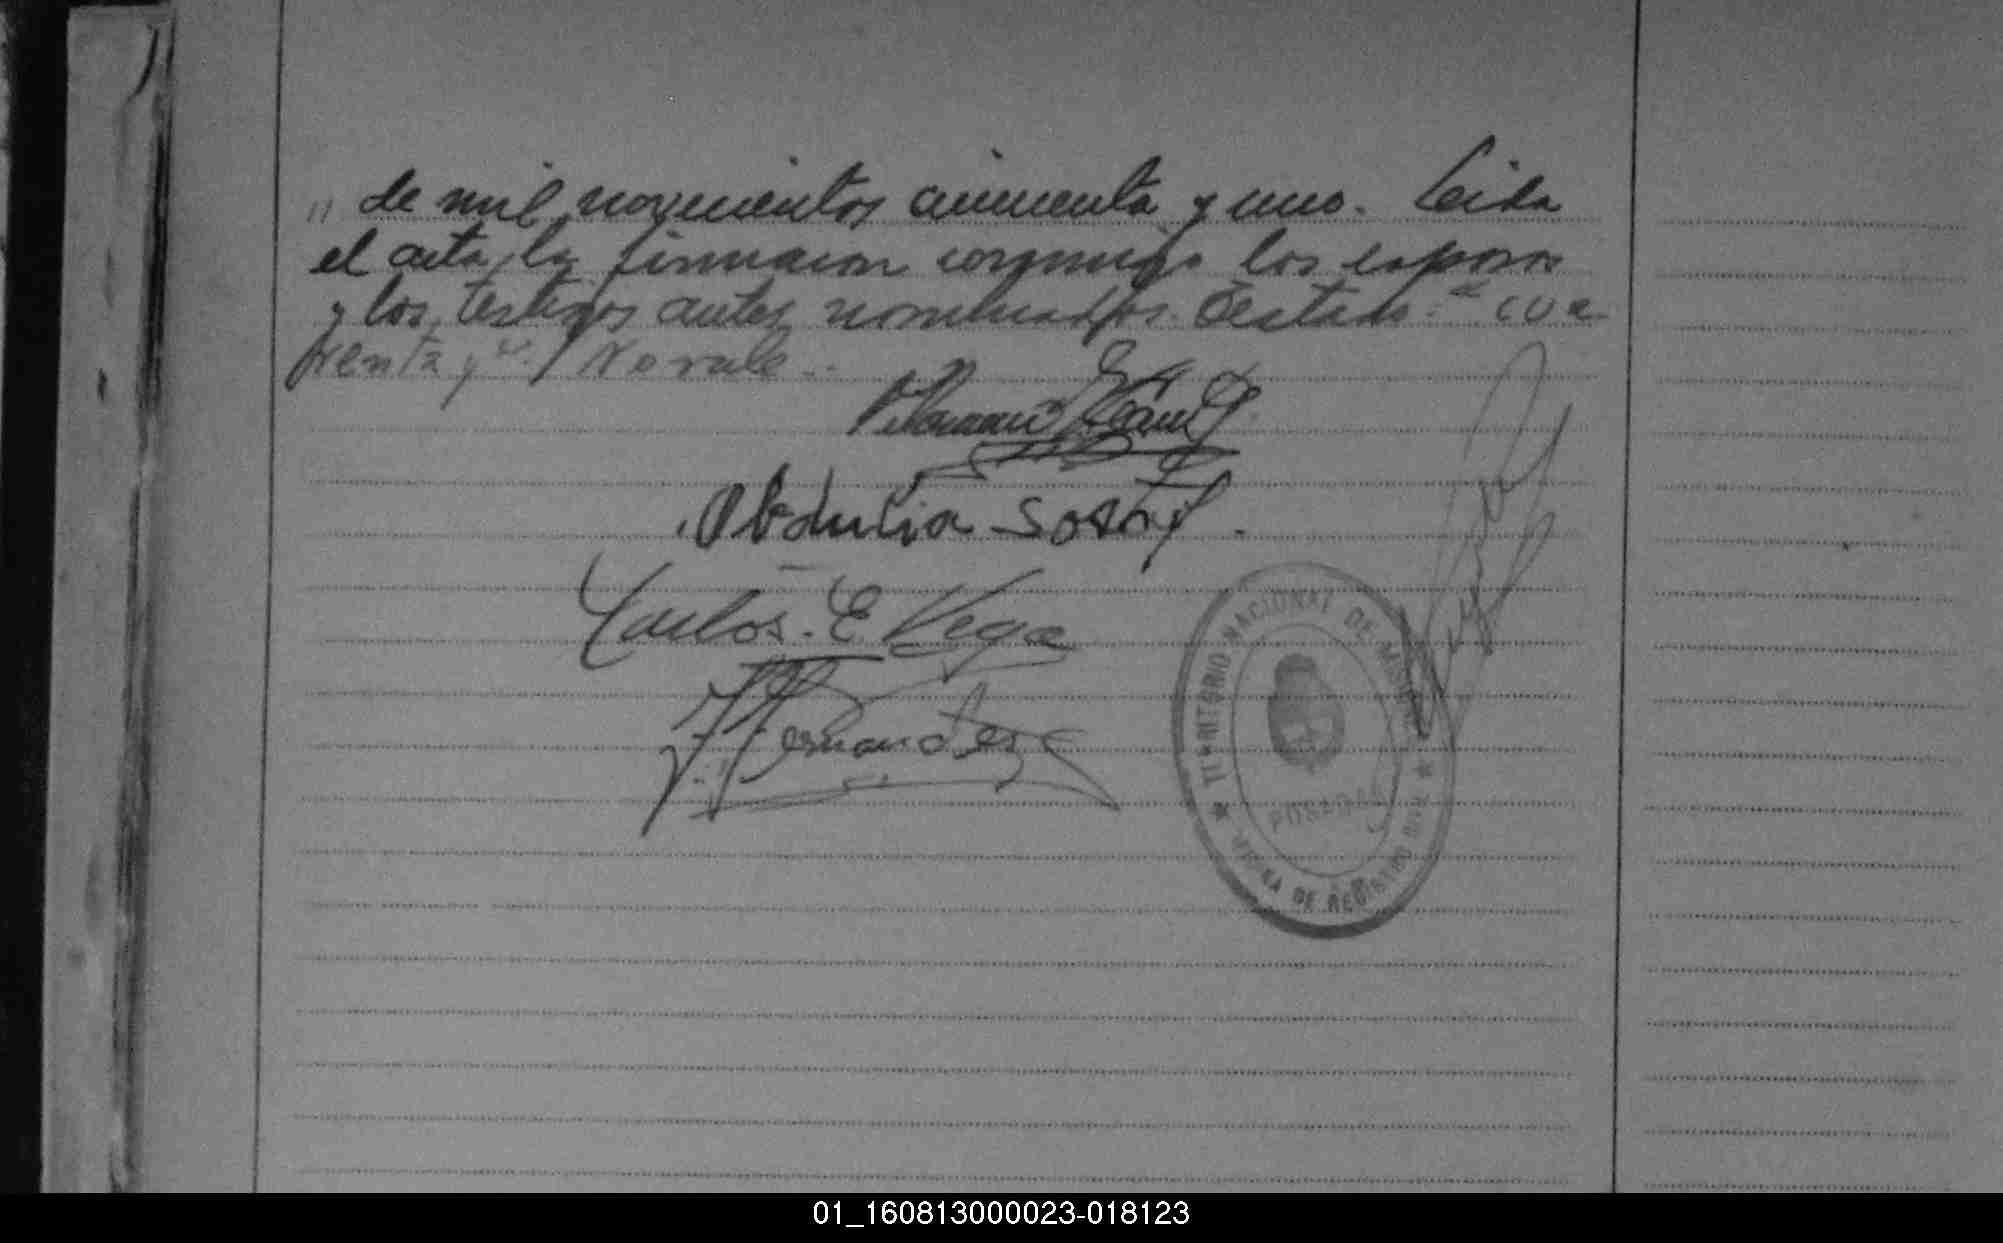 " de mil novecientos cincuenta y uno. Leida
el acta, la firmaron conmigo los esposos
y los testigos antes nombrados. Testado: "cua
renta y" / No vale..
Obdulia Sosa
Carlos. E. Vega
J. Fernandez
TERRITORIO NACIONAL DE MISIONES
POSADAS
OFICINA DE REGISTRO CIVIL
01_160813000023-018123